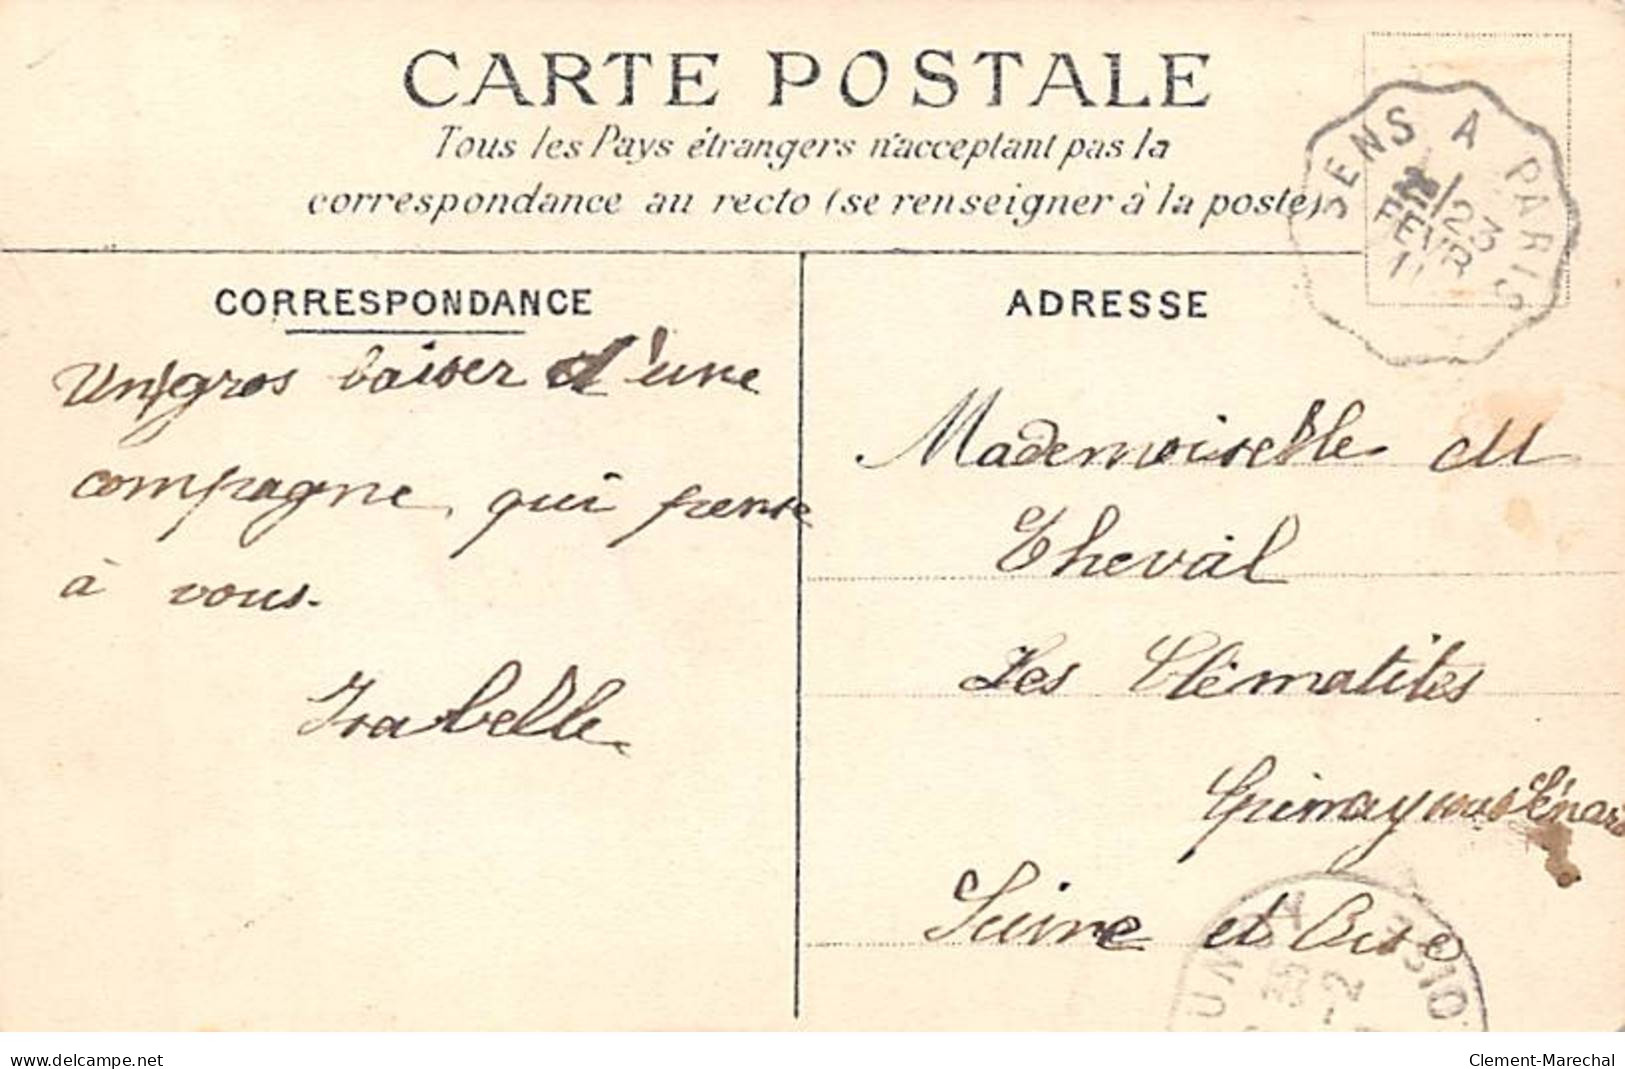 CARTE POSTALE
Tous les Pays étrangers n'acceptant pas la
correspondance au recto (se renseigner à la poste)
SENS A PARIS
23
FEVR
11
CORRESPONDANCE
ADRESSE
Un gros baiser d'une
compagne, qui pense
à vous.
Isabelle
Mademoiselle M
Theval
Les Clématites
Epinay sous Sénart
Seine et Oise
www.delcampe.net
Clement-Marechal